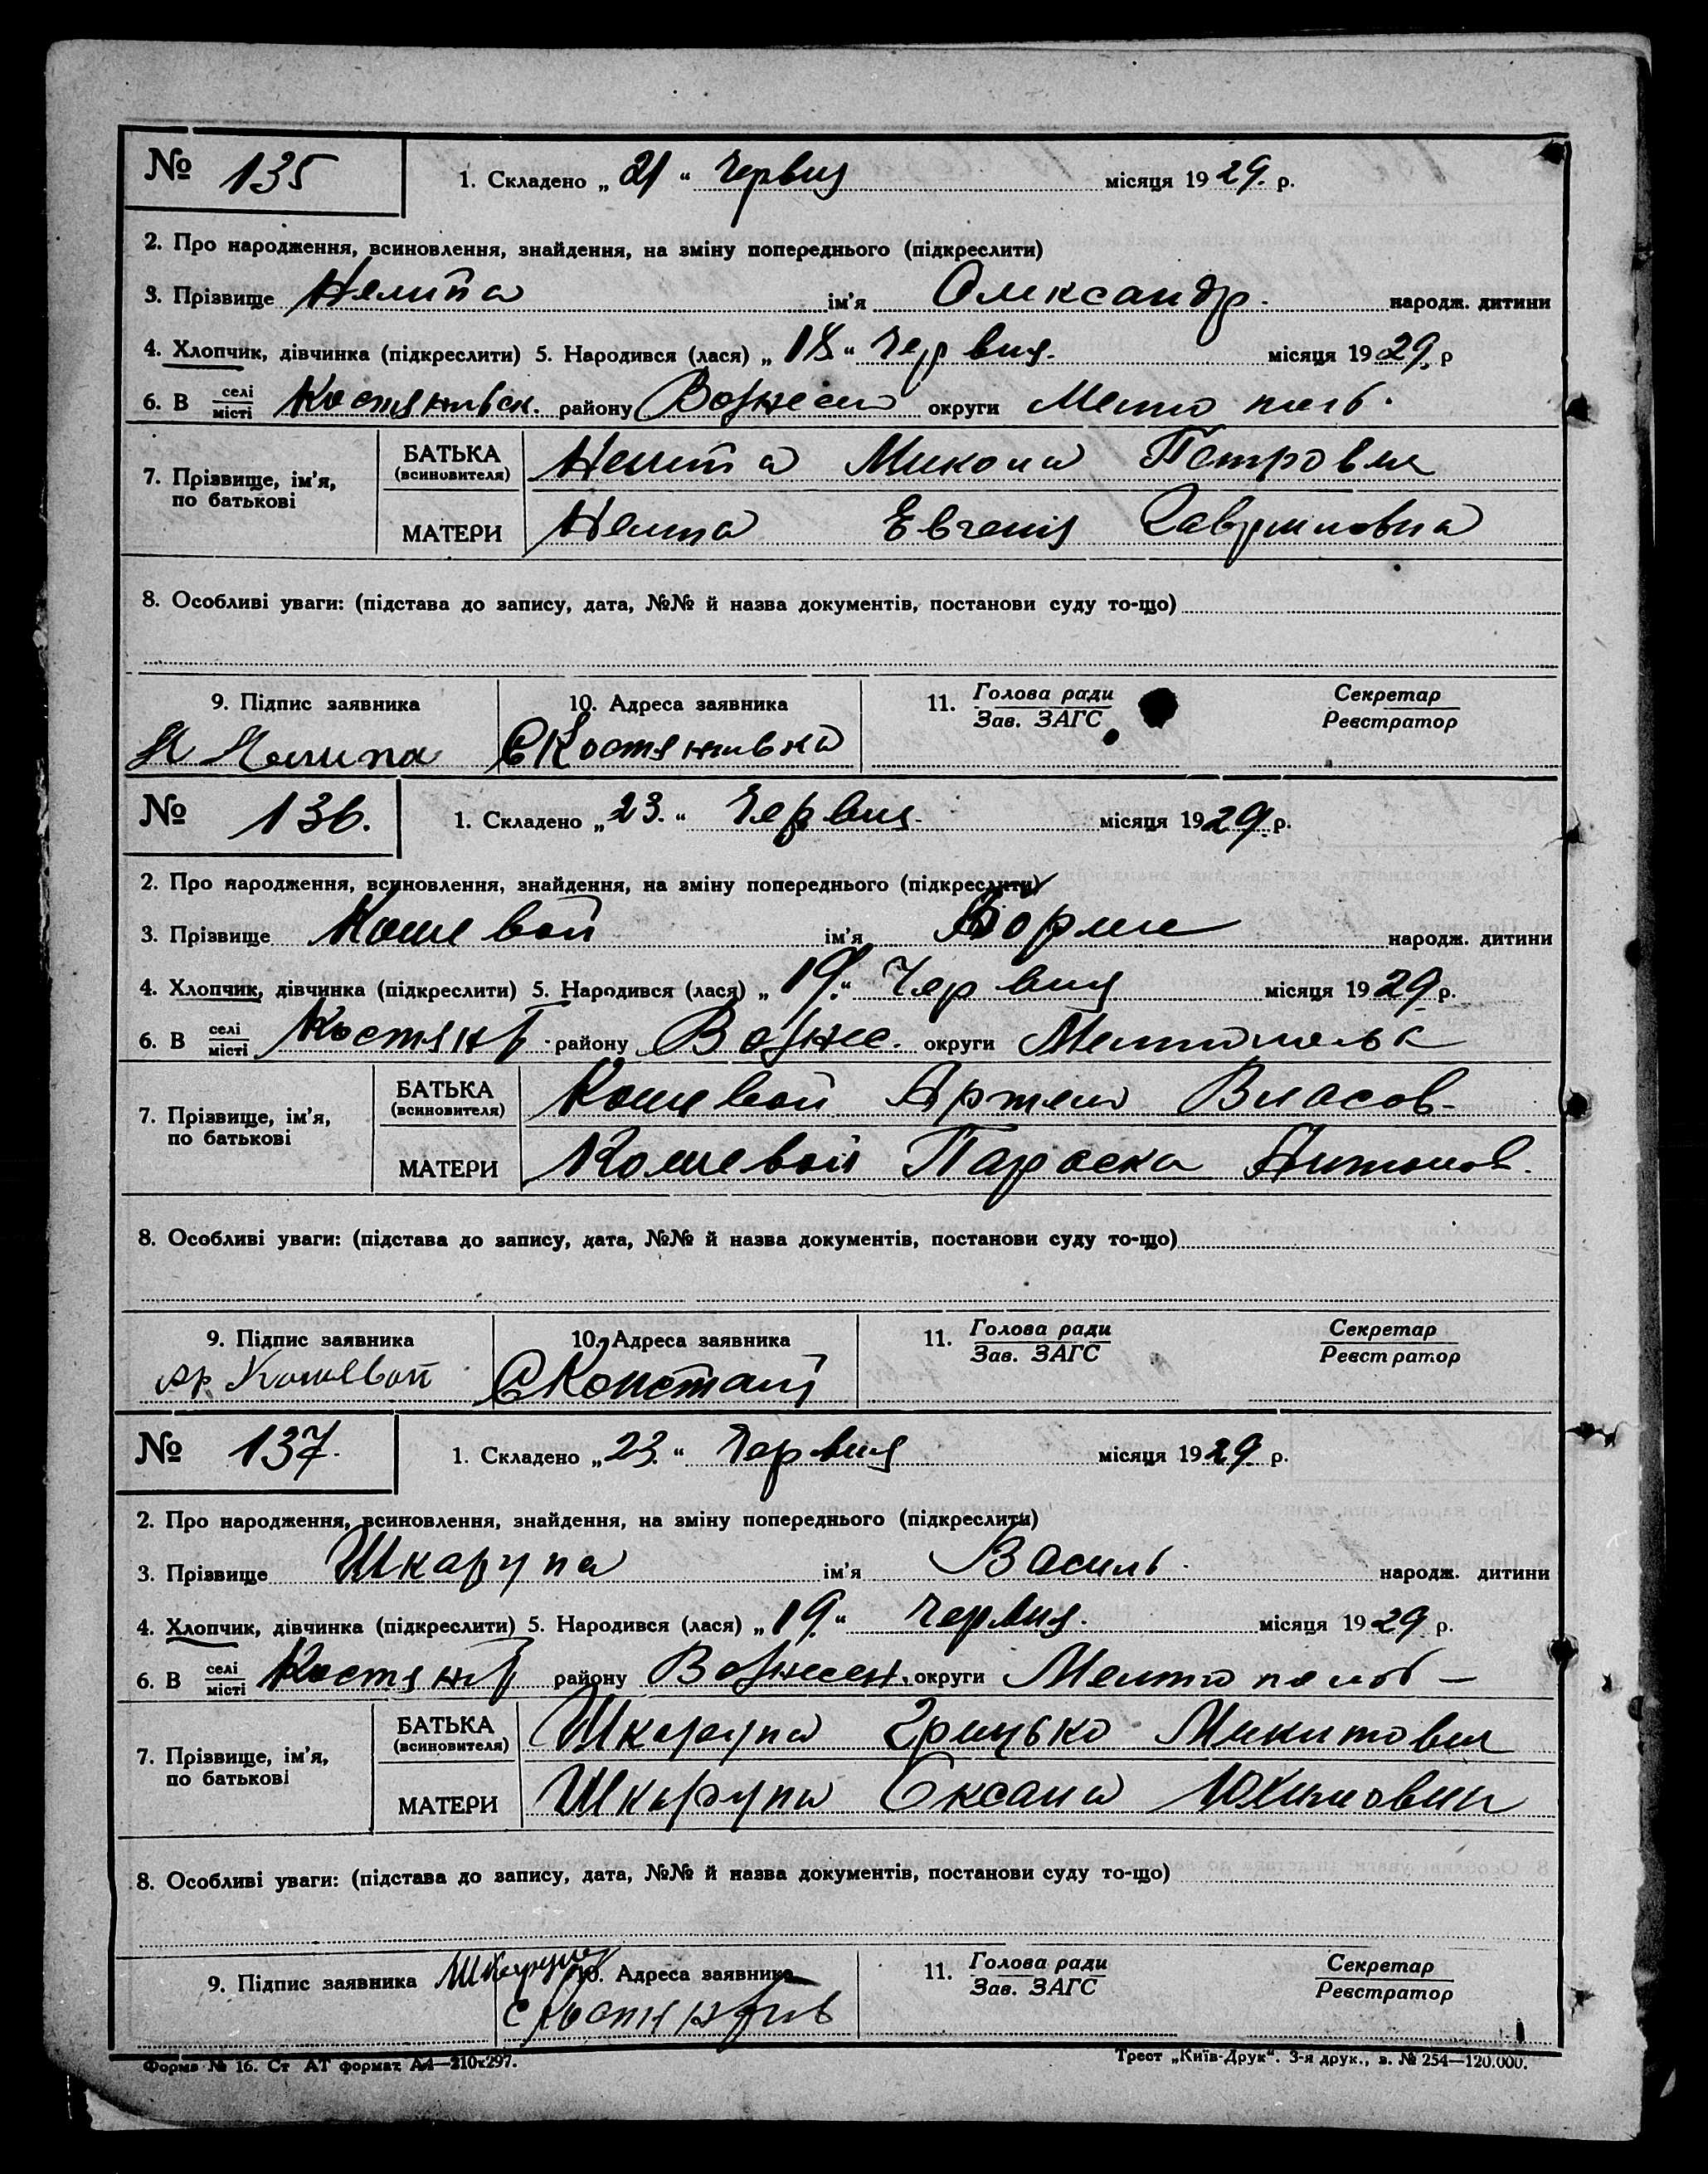 № 135 1. Складено „ 21 “ Червня місяця 1929. р.
2. Про народження, всиновлення, знайдення, на зміну попереднього (підкреслити)
3. Прізвище Нелипа ім’я Олександр. народж. дитини
4. Хлопчик, дівчинка (підкреслити) 5. Народився (лася) „ 18 “ Червня. місяця 1929. р
6. В селі/місті Костянтивск. району Вознесен округи Мелитопол.
БАТЬКА (всиновителя) Нелипа Микола Петрович
7. Прізвище, ім’я, по батькові
МАТЕРИ Нелипа Евгенія Гавриловна
8. Особливі уваги: (підстава до запису, дата, №№ й назва документів, постанови суду то-що)
9. Підпис заявника 10. Адреса заявника 11. Голова ради/Зав. ЗАГС Секретар/Реєстратор
Нелипа С Костянтивка
№ 136. 1. Складено „ 23. “ Червня. місяця 1929. р.
2. Про народження, всиновлення, знайдення, на зміну попереднього (підкреслити)
3. Прізвище Кошевой ім’я Борис народж. дитини
4. Хлопчик, дівчинка (підкреслити) 5. Народився (лася) „ 19. “ Червня місяця 1929. р.
6. В селі/місті Костянт району Вознес. округи Мелитопольс
БАТЬКА (всиновителя) Кошевой Артем Власов.
7. Прізвище, ім’я, по батькові
МАТЕРИ Кошевой Параска Антонов.
8. Особливі уваги: (підстава до запису, дата, №№ й назва документів, постанови суду то-що)
9. Підпис заявника 10. Адреса заявника 11. Голова ради/Зав. ЗАГС Секретар/Реєстратор
Ар Кошевой С Констант
№ 137. 1. Складено „ 23. “ Червня місяця 1929. р.
2. Про народження, всиновлення, знайдення, на зміну попереднього (підкреслити)
3. Прізвище Шкарупа ім’я Василь. народж. дитини
4. Хлопчик, дівчинка (підкреслити) 5. Народився (лася) „ 19. “ Червня. місяця 1929 р.
6. В селі/місті Костянт району Вознесен. округи Мелитополь
БАТЬКА (всиновителя) Шкарупа Грицько Микитович
7. Прізвище, ім’я, по батькові
МАТЕРИ Шкарупа Оксана Юхимовна
8. Особливі уваги: (підстава до запису, дата, №№ й назва документів, постанови суду то-що)
9. Підпис заявника Шкарупа 10. Адреса заявника 11. Голова ради/Зав. ЗАГС Секретар/Реєстратор
Форма № 16. Ст АТ формат А4—210х297. Трест „Київ-Друк“. 3-я друк., з. № 254—120.000.